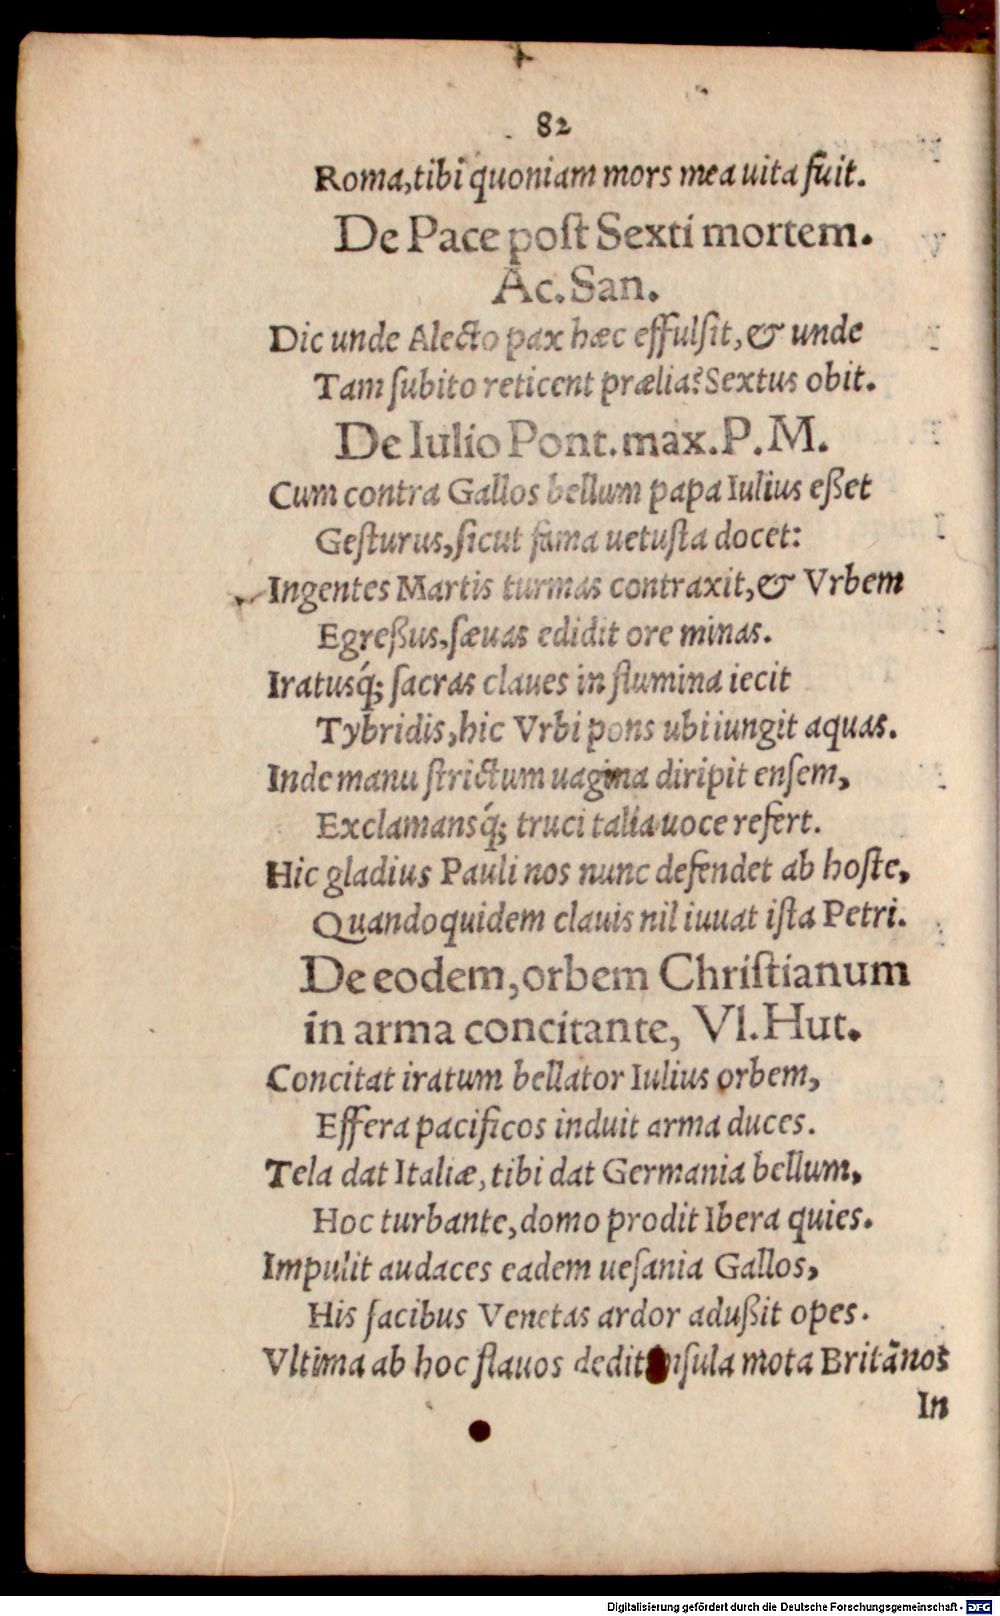 82
Roma, tibi quoniam mors mea uita fuit.
De Pace poſt Sexti mortem.
Ac. San.
Dic unde Alecto pax hæc effulſit, & unde
Tam ſubito reticent prælia? Sextus obit.
De Iulio Pont. max. P. M.
Cum contra Gallos bellum papa Iulius eßet
Geſturus, ſicut fama uetuſta docet:
Ingentes Martis turmas contraxit, & Vrbem
Egreßus, ſæuas edidit ore minas.
Iratusq́; ſacras claues in flumina iecit
Tybridis, hic Vrbi pons ubi iungit aquas.
Inde manu ſtrictum uagina diripit enſem,
Exclamansq́; truci talia uoce refert.
Hic gladius Pauli nos nunc defendet ab hoſte,
Quandoquidem clauis nil iuuat iſta Petri.
De eodem, orbem Chriſtianum
in arma concitante, Vl. Hut.
Concitat iratum bellator Iulius orbem,
Effera pacificos induit arma duces.
Tela dat Italiæ, tibi dat Germania bellum,
Hoc turbante, domo prodit Ibera quies.
Impulit audaces eadem ueſania Gallos,
His facibus Venetas ardor adußit opes.
Vltima ab hoc flauos dedit inſula mota Britãnos
In
Digitalisierung gefördert durch die Deutsche Forschungsgemeinschaft - DFG